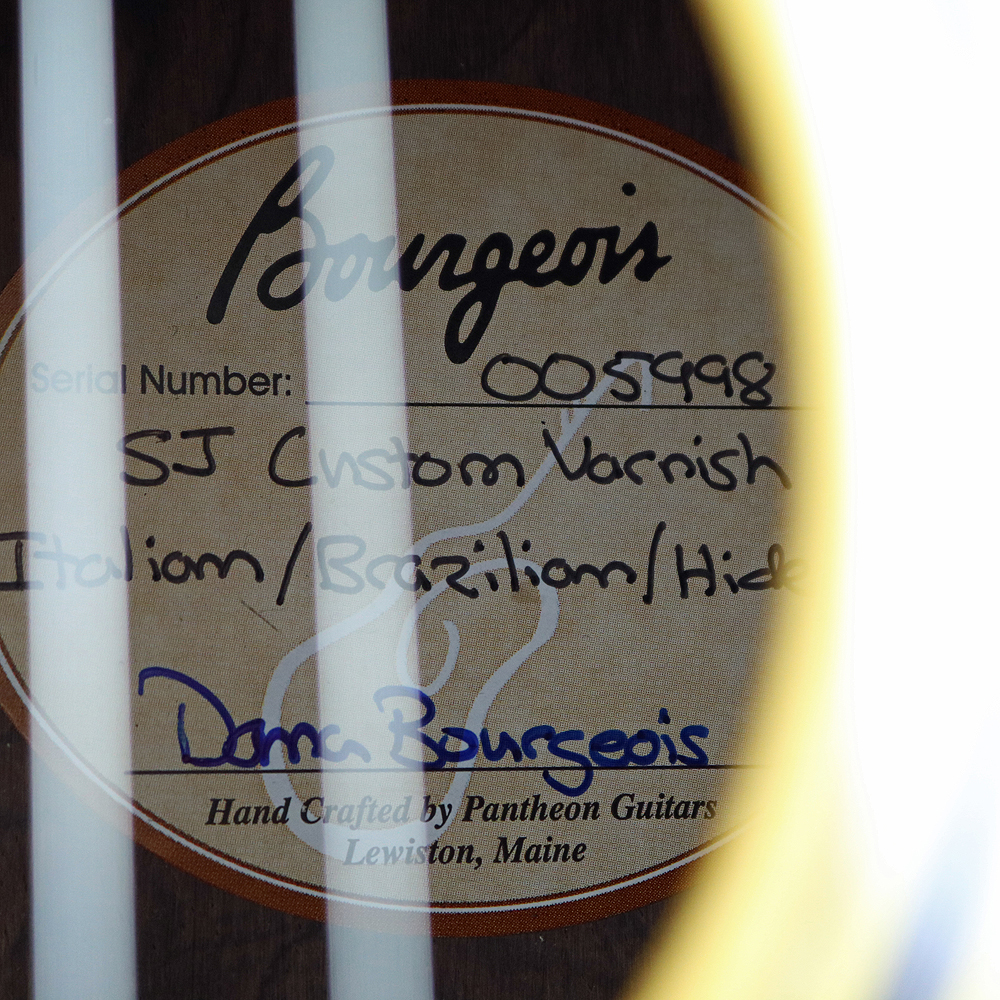 Bourgeois
Serial Number: 005998
SJ Custom Varnish
Italian/Brazilian/Hide
Dana Bourgeois
Hand Crafted by Pantheon Guitars
Lewiston, Maine